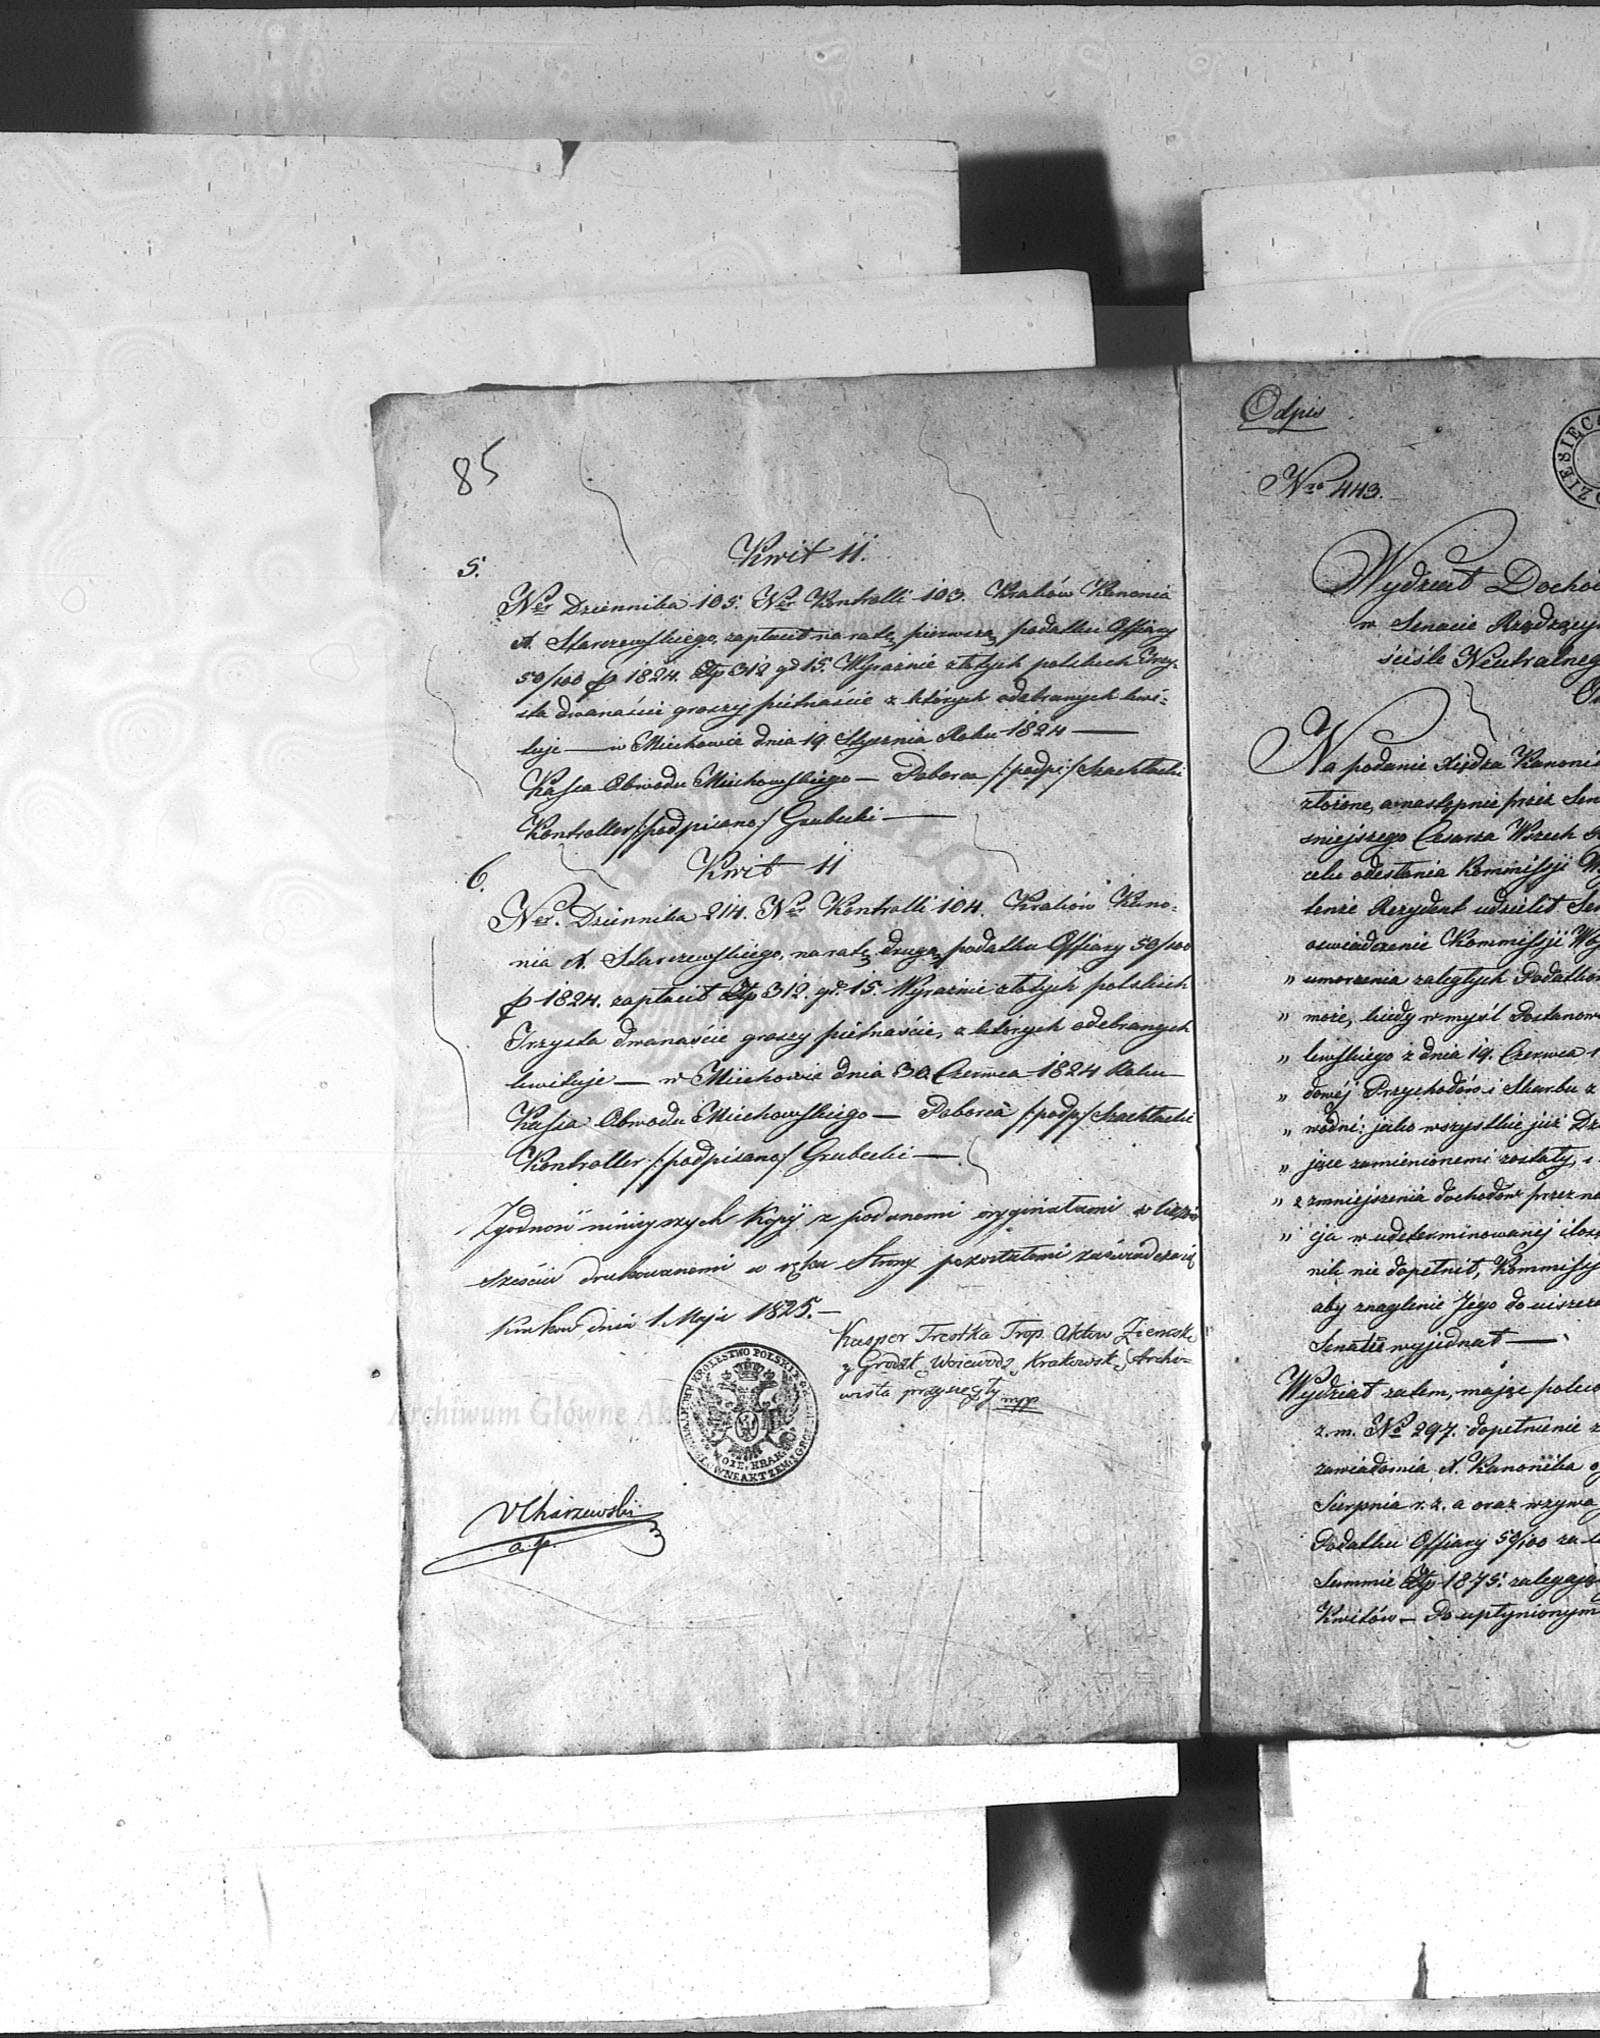 85
Kwit 11.
5.
Ner Dziennika 105. Ner Kontrolli 103. Kraków Kanonia
X. Starczewskiego, zapłacił na ratę pierwszą podatku Offiary
50/100 p 1824. Złp 312 gr 15. Wyraźnie złotych polskich Trzy-
sta dwanaście groszy piętnaście z których odebranych kwi-
tuje — w Miechowie dnia 19 Stycznia Roku 1824 —
Kassa Obwodu Miechowskiego — Poborca /:podp:/ Szachłacki
Kontroller /:podpisano:/ Grubecki —
6.
Kwit 11
Ner. Dziennika 214. Ner Kontrolli 104. Kraków Kano-
nia X. Starczewskiego, na ratę drugą podatku Offiary 50/100
p 1824. zapłacił Złp 312. gr. 15. Wyraźnie złotych polskich
Trzysta dwanaście groszy piętnaście, z których odebranych
kwituje — w Miechowie dnia 30 Czerwca 1824 Roku
Kassa Obwodu Miechowskiego — Poborca /:podp:/ Szachłacki
Kontroller /:podpisano:/ Grubecki —
Zgodność ninieyszych Kopij z podanemi oryginałami w liczbie
sześciu drukowanemi w ręku Strony pozostałemi zaświadczam
Krakow dnia 1. Maja 1825. —
Kasper Trestka Trop. Aktow Ziemsk:
y Grodzk Woiewodz Krakowsk Archi-
wista przysięgły mpp
KROLESTWO POLSKIE
WOIE: KRAKOW
Archiwum Główne Ak
V Charzewski
a.p.
Odpis
DZIESIĘC
Nro 443.
Wydział Docho
w Senacie Rządzący
ściśle Neutralneg
Na podanie Xiędza Kanoni
złożone, a następnie przez Sen
śniejszego Cesarza Wszech
celu odesłania Kommissji W
tenże Rezydent udzielił Sen
oświadczenie Kommissji Wo
„ umorzenia zaległych Podatków
„ może, kiedy w myśl Postanow
„ lewskiego z dnia 19. Czerwca 1
„ dowéj Przychodów i Skarbu z
„ wodni: jako wszystkie już Dz
„ jące zamienionemi zostały, i
„ z zmniejszenia dochodów przez na
„ cja w udeterminowanej ilos
nili nie dopełnił, Kommissj
aby znaglenie Jego do uiszcze
Senatu wyjednał —
Wydział zatem, mając polec
z. m. No 297. dopełnienie z
zawiadomia X. Kanonika o
Sierpnia r. z. a oraz wzywa
Podatku Offiary 50/100 za
Summie Złp 1875. zalegają
Kwitów — Po upłynionym